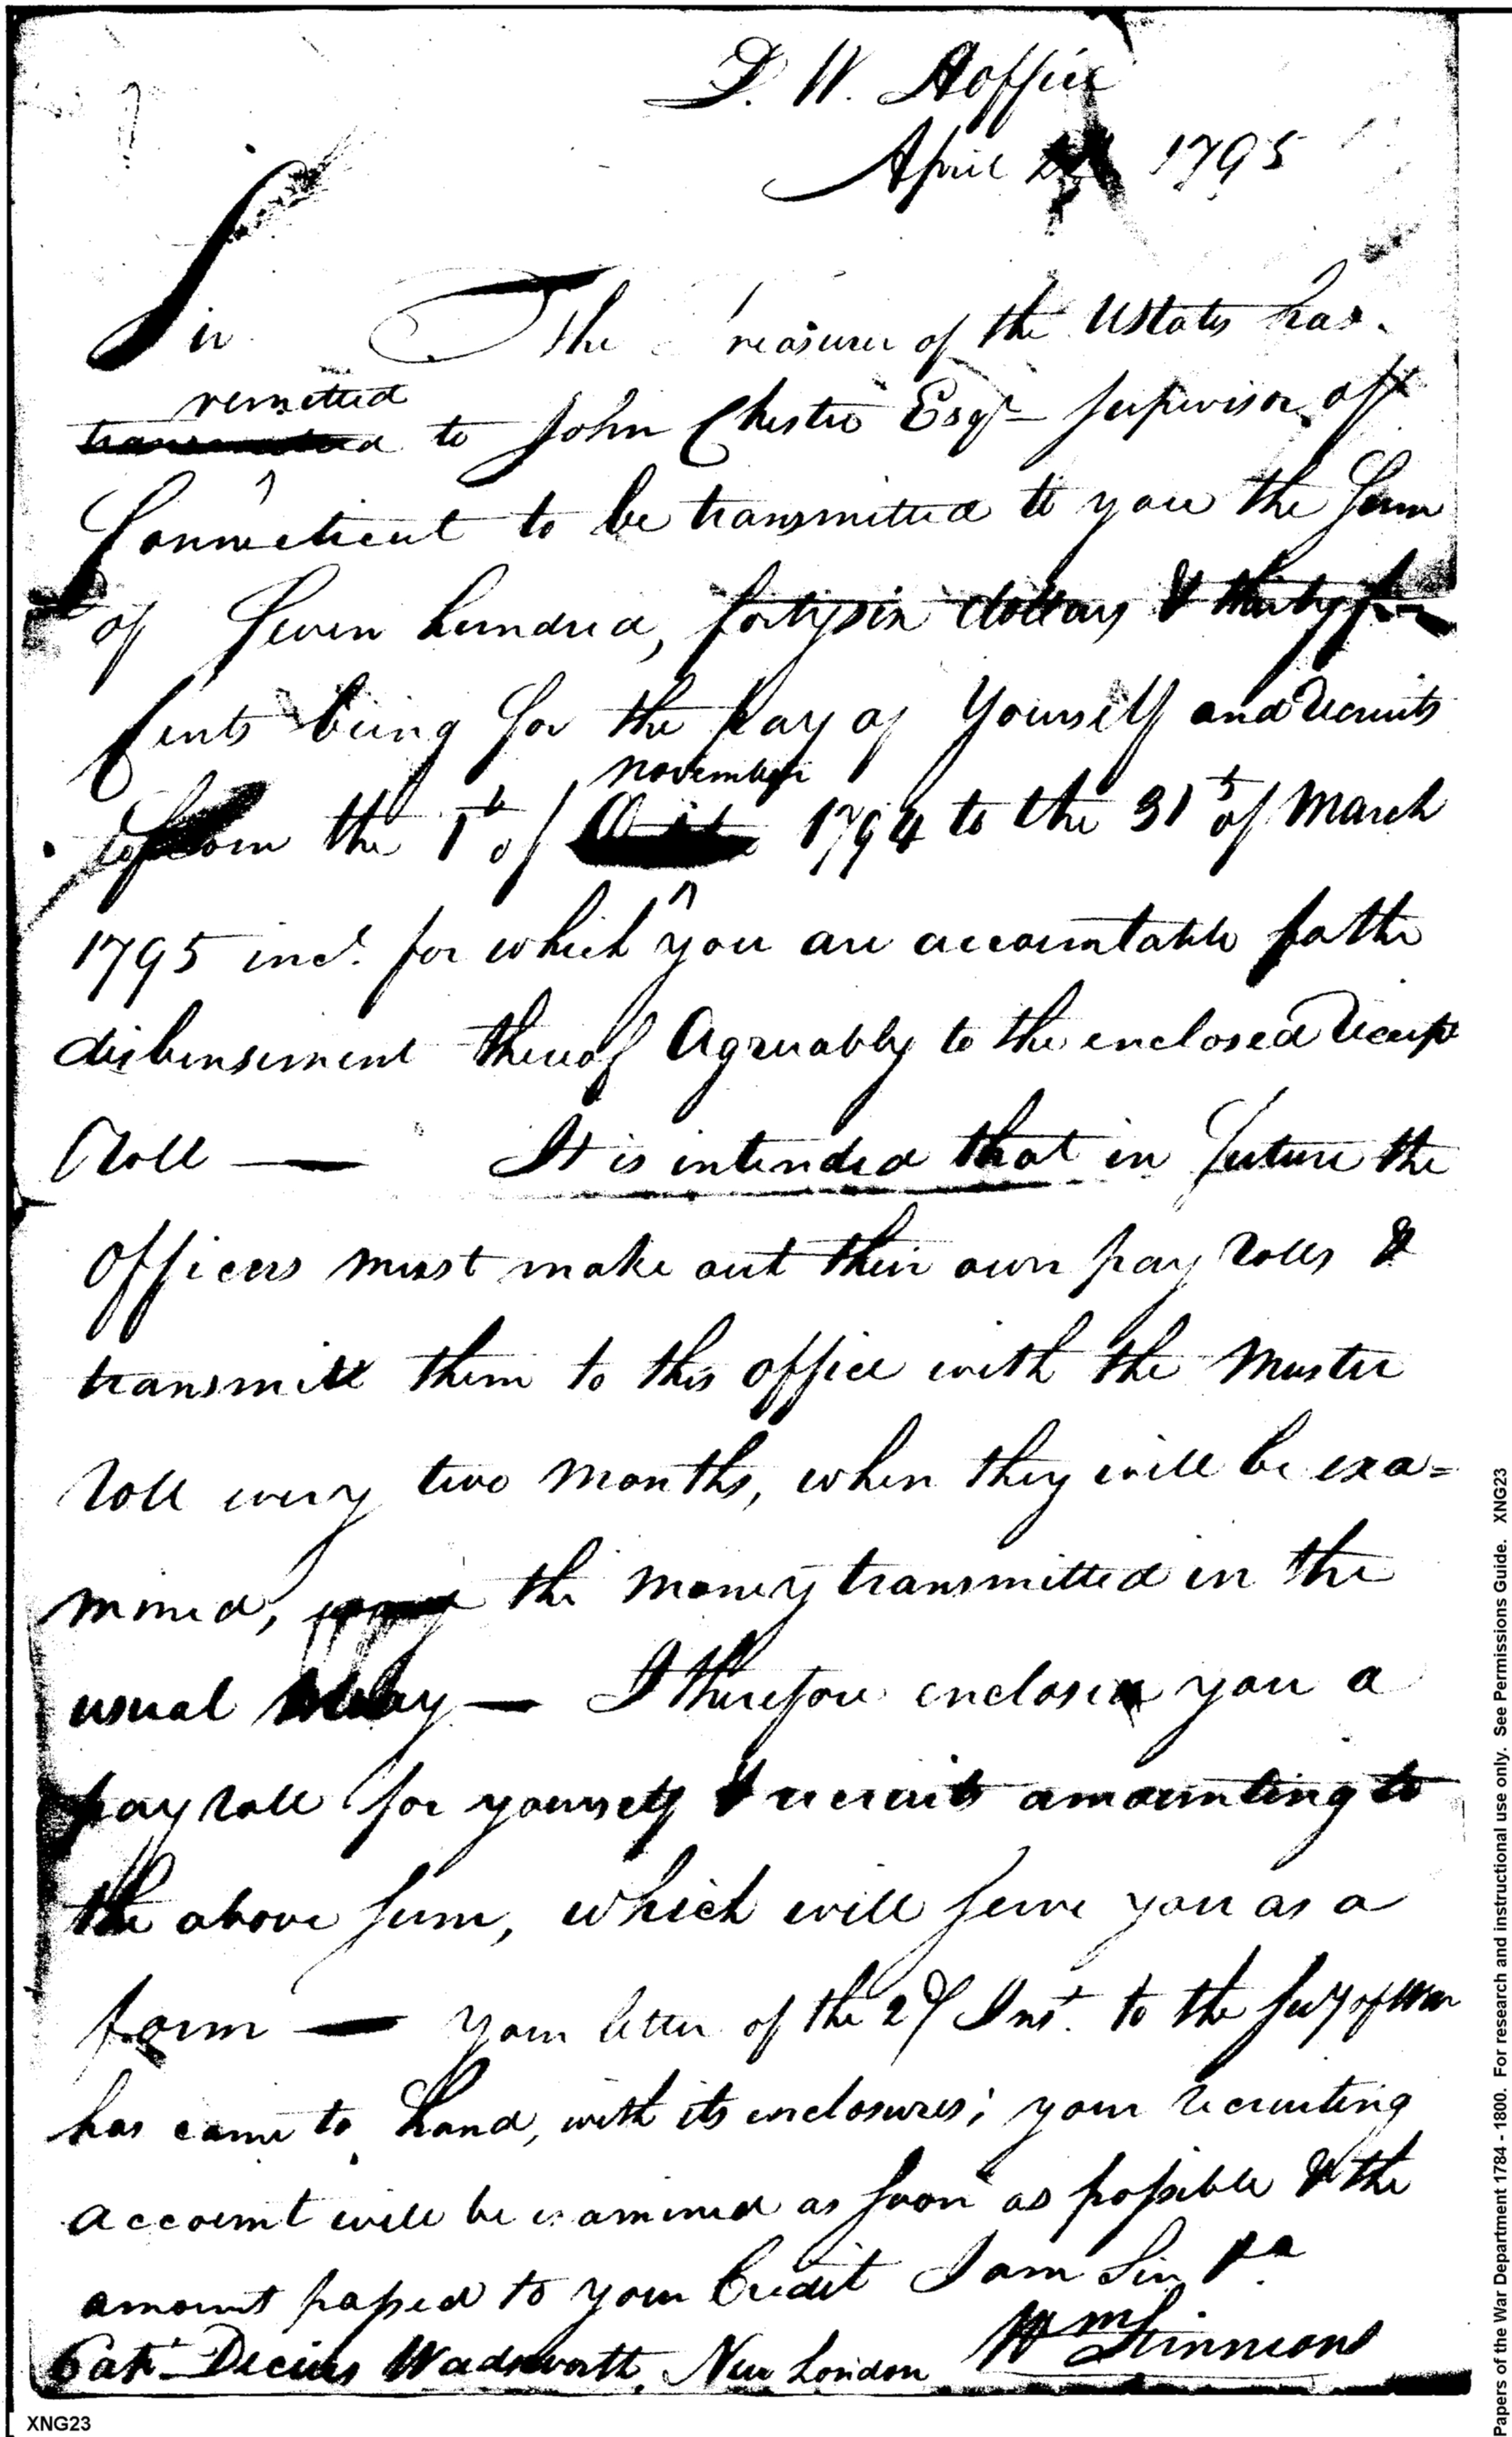 D. W. A office
April 1795
Sir The Treasurer of the UStates has
remitted
to John Chester Esqr Supervisor off
Connecticut to be transmitted to you the Sum
of Seven hundred, forty six dollars & thirty
Cents being for the pay of Yourself and recruits
november
from the 1st of 1794 to the 31st of March
1795 incl. for which you are accountable for the
disbursement thereof Agreeably to the enclosed receipt
Roll — It is intended that in future the
Officers must make out their own pay rolls &
transmitt them to this office with the Muster
roll every two months, when they will be exa=
mined, the money transmitted in the
usual way — I therefore enclose you a
pay roll for yourself & recruits amounting to
the above sum, which will serve you as a
form — your letter of the Inst. to the Secy of War
has came to hand, with its enclosures; your recruiting
account will be examined as soon as possible & the
amount passed to your Credit I am Sir &a
Wm Simmons
Capt Decius Wadsworth, New London
XNG23
Papers of the War Department 1784 - 1800. For research and instructional use only. See Permissions Guide. XNG23